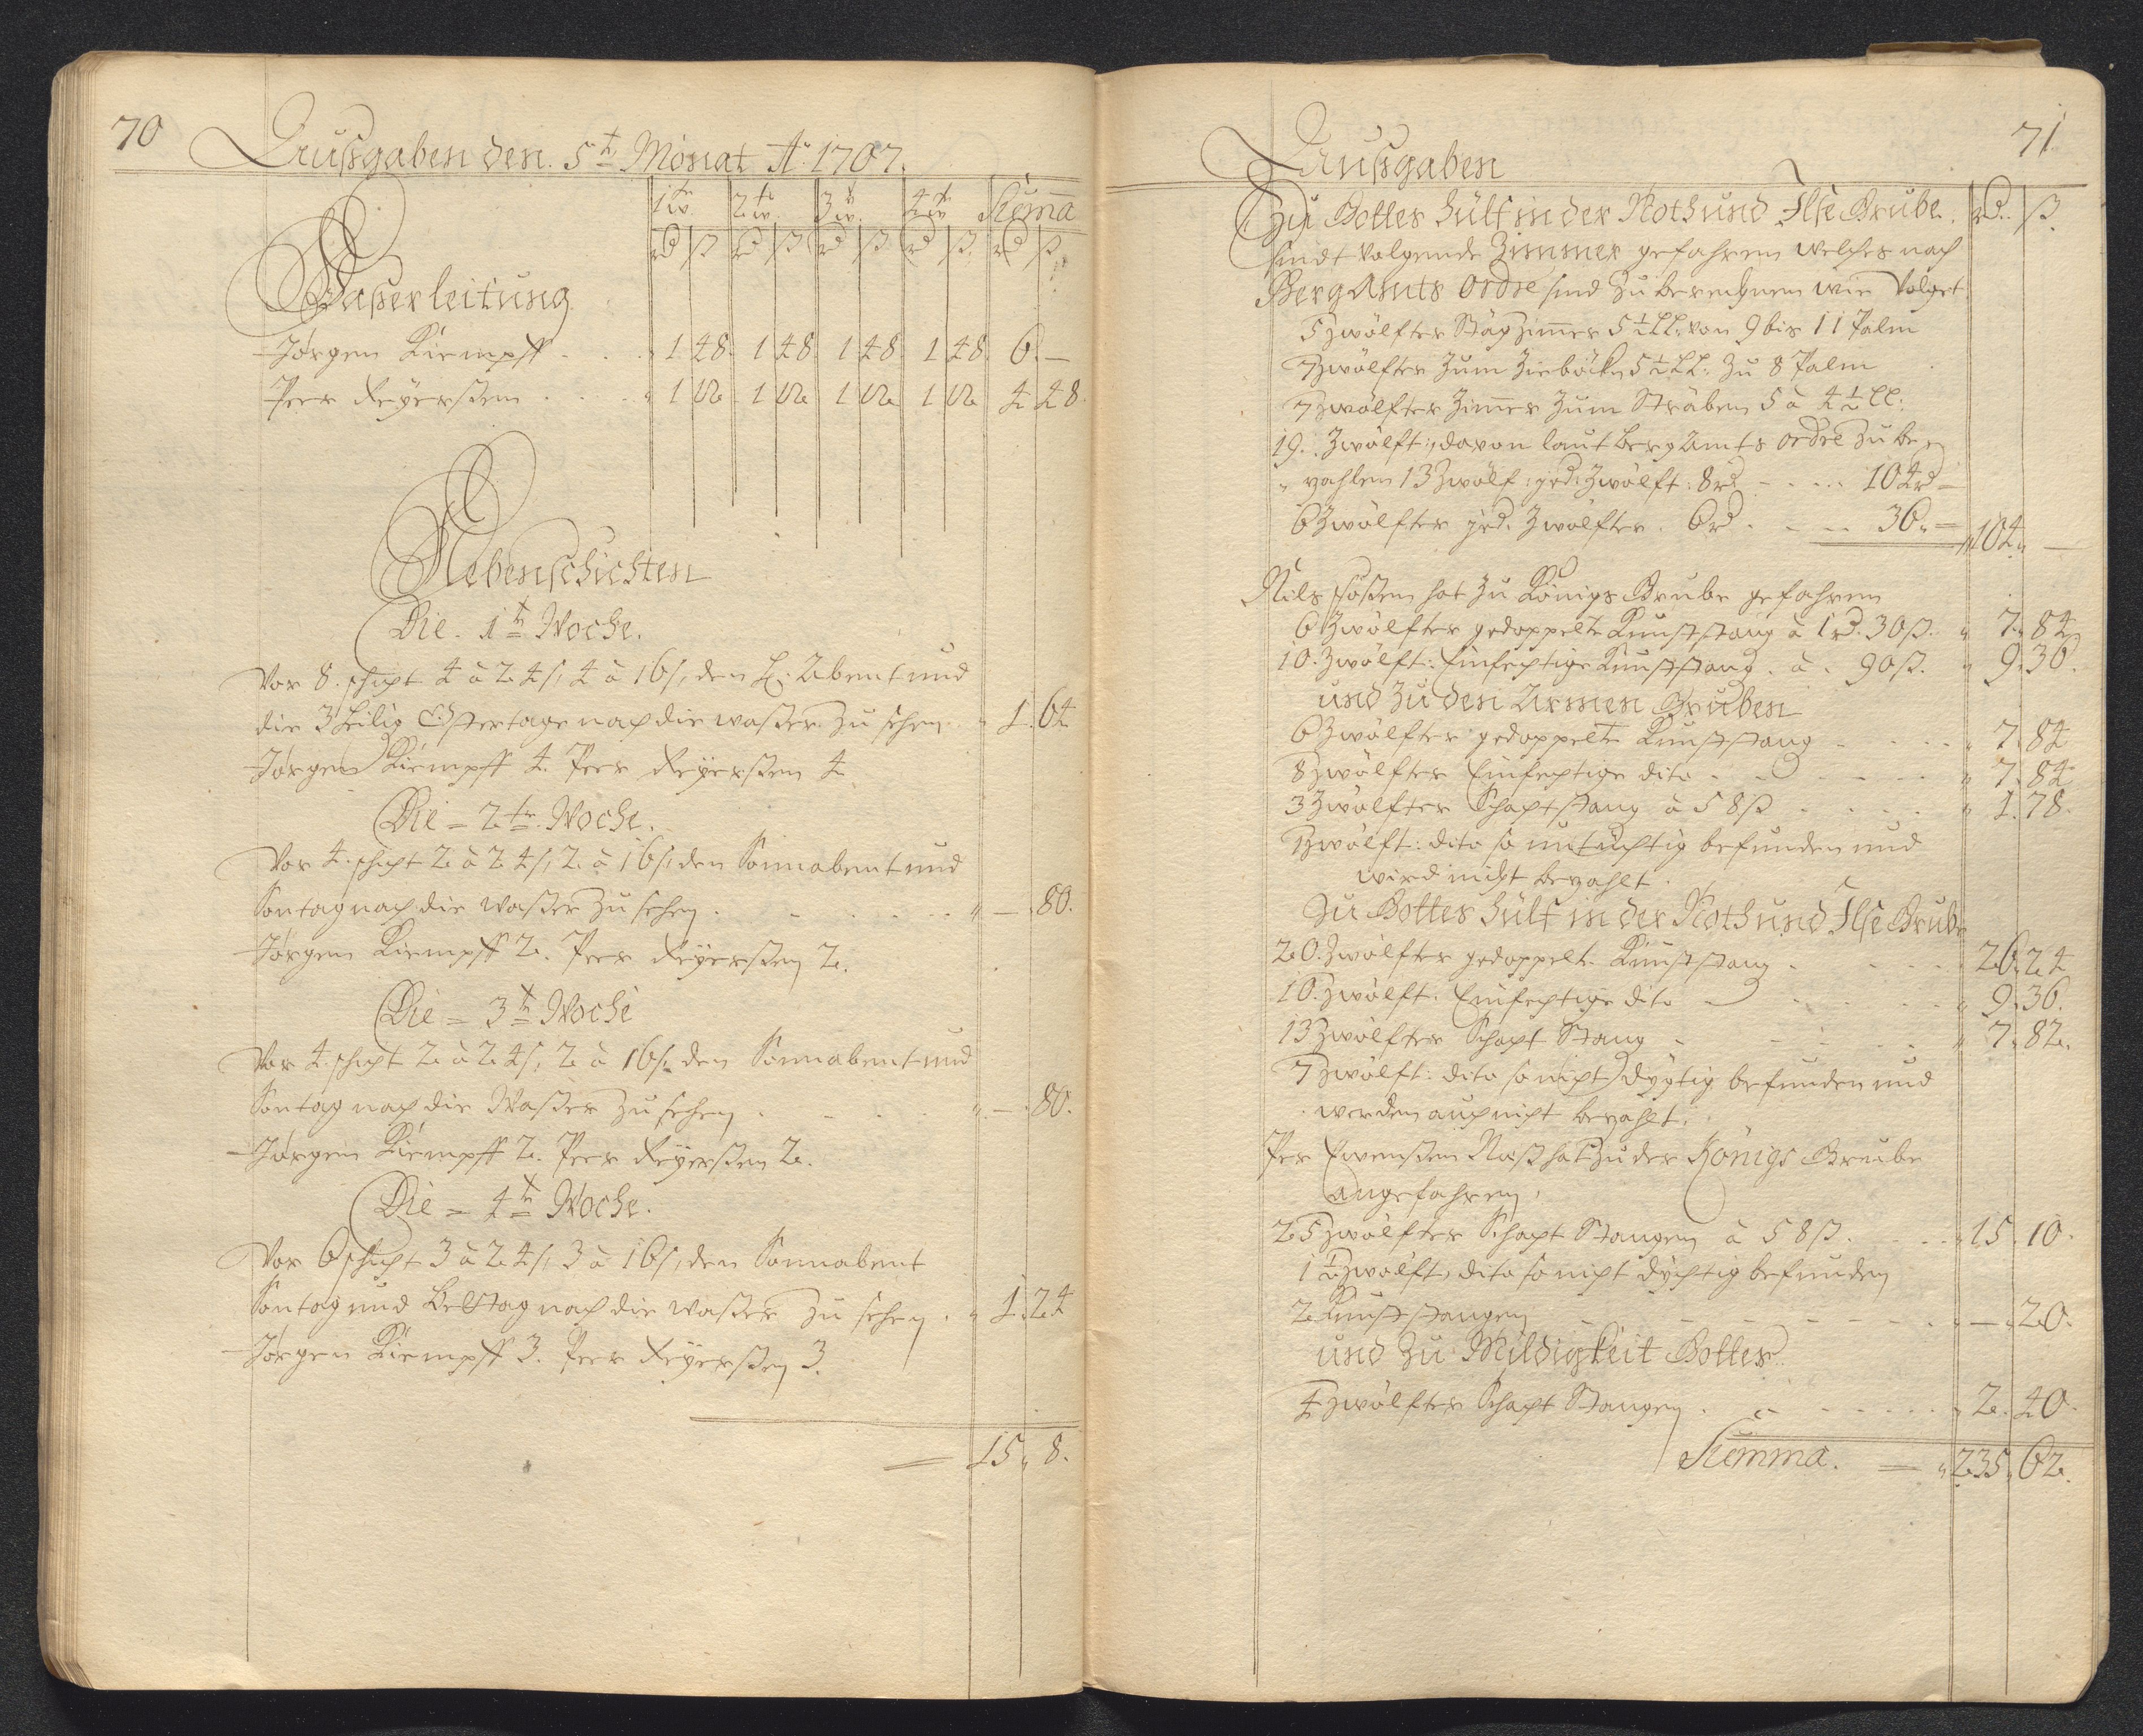 70
Außgaben den. 5t Monat Ao 1707.
1t w. 2t w. 3t w. 4t w Summa
rd ß rd ß rd ß rd ß rd ß
Waßerleitung
Jørgen Kiempff . . . 1 48. 1 48. 1 48. 1 48. 6. —
Peer Reÿerßen . . . 1 12. 1 12 1 12 1 12 4 48.
Nebenschichten
Die. 1t Woche.
Vor 8. schicht 4 à 24 s, 4 à 16 s, den H. Abent und
die 3 Heilig Ostertage nach die waßer zu sehen . 1. 64
Jørgen Kiempff 4. Peer Reÿerßen 4
Die = 2te Woche.
Vor 4. schicht 2 à 24 s, 2 à 16 s, den Sonnabent und
Sontag nach die waßer zu sehen . . . . — 80.
Jørgen Kiempff 2. Peer Reÿerßen 2.
Die = 3t Woche
Vor 4. schicht 2 à 24 s, 2 à 16 s. den Sonnabent und
Sontag nach die Waßer zu sehen . . . . — 80.
Jørgen Kiempff 2. Peer Reÿerßen 2.
Die = 4t Woche.
Vor 6 schicht 3 à 24 s, 3 à 16 s, den Sonnabent
Sontag und Bettag nach die waßer zu sehen . 1. 24
Jørgen Kiempff 3. Peer Reÿerßen 3.
— 15. 8.
71.
Außgaben
Zu Gottes hülf in der Noth und Ilse Grube. rd. ß.
sindt volgende Zimmer gefahren welches nach
BergAmts Ordre sind zu berechnen wie volget
5 zwölfter Zimer 5 1/2 LL: von 9 bis 11 Palm
7 zwölfter zum 5 1/2 LL: zu 8 Palm
7 zwölfter Zimer zum Sträben 5 à 4 1/2 LL:
19. Zwölft:, davon laut BergAmts ordre zu be
zahlen 13 Zwölf: jed: Zwölft: 8 rd - - ... 104 rd —
6 Zwölfter jed. Zwölfter. 6 rd. - - - 36. = 104. —
Nils hat zu Königs Grube gefahren
6 Zwölfter gedoppelte Kunststang à 1 rd. 30 ß. 7. 84
10. Zwölft: Einfechtige Kunststang. à. 90 ß. 9. 36.
und zu den Armen Gruben
6 Zwölfter gedoppelte Kunststang - . . . 7. 84
8 zwölfter Einfechtige dito . - - - 7. 84
3 Zwölfter Schachtstang à 58 ß . . . . 1. 78.
1 zwölft: dito so untüchtig befunden und
wird nicht bezahlt.
Zu Gottes hülf in der Noth und Ilse Grube
20. Zwölfter gedoppelt. Kunststang . . . . 26. 24
10. Zwölft. Einfechtige dito - - . . . 9. 36.
13 Zwölfter Schacht Stang - - - . 7. 82.
7 zwölft: dito so nicht dügtig befunden und
werden auch nicht bezahlt.
Per Evenßen hat zu der Königs Grube
angefahren,
25 zwölfter Schacht Stangen à 58 ß. - - . 15. 10.
1 1/2 zwölft, dito so nicht düchtig befunden
2 Kunststangen - - - - - - . . — 20.
und zu Mildigkeit Gottes
4 zwölfter Schacht Stangen . - - - . . . 2. 40.
Summa. — 235. 62.